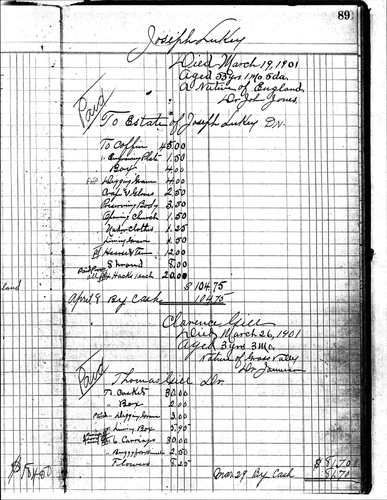 89
Joseph Lukey
Died March 19, 1901
Aged 53 yrs 1 Mo 5 da.
A Native of England
Dr John Jones.
Paid
To Estate of Joseph Lukey Dr.
To Coffin 45.00
" Engraving Plate 1.50
Box 4.00
Paid Digging Grave 4.00
Crape & Gloves 2.50
Preserving Body 3.50
Opening Church 1.50
Under Clothes 1.25
Lining Grave 1.50
Hearse & Team 12.00
8.00
Hacks each 20.00
$ 104.75
April 9 By Cash 104.75
land
Clarence Gill
Died March 26, 1901
Aged 3 yrs 3 Mo.
Native of Grass Valley
Dr Jamieson
Paid
Thomas Gill Dr.
To Casket 30.00
" Box 2.00
Paid " Digging Grave 3.00
" Lining Box
6 Carriages 30.00
2.50
Flowers 5.25
Mar 29 By Cash